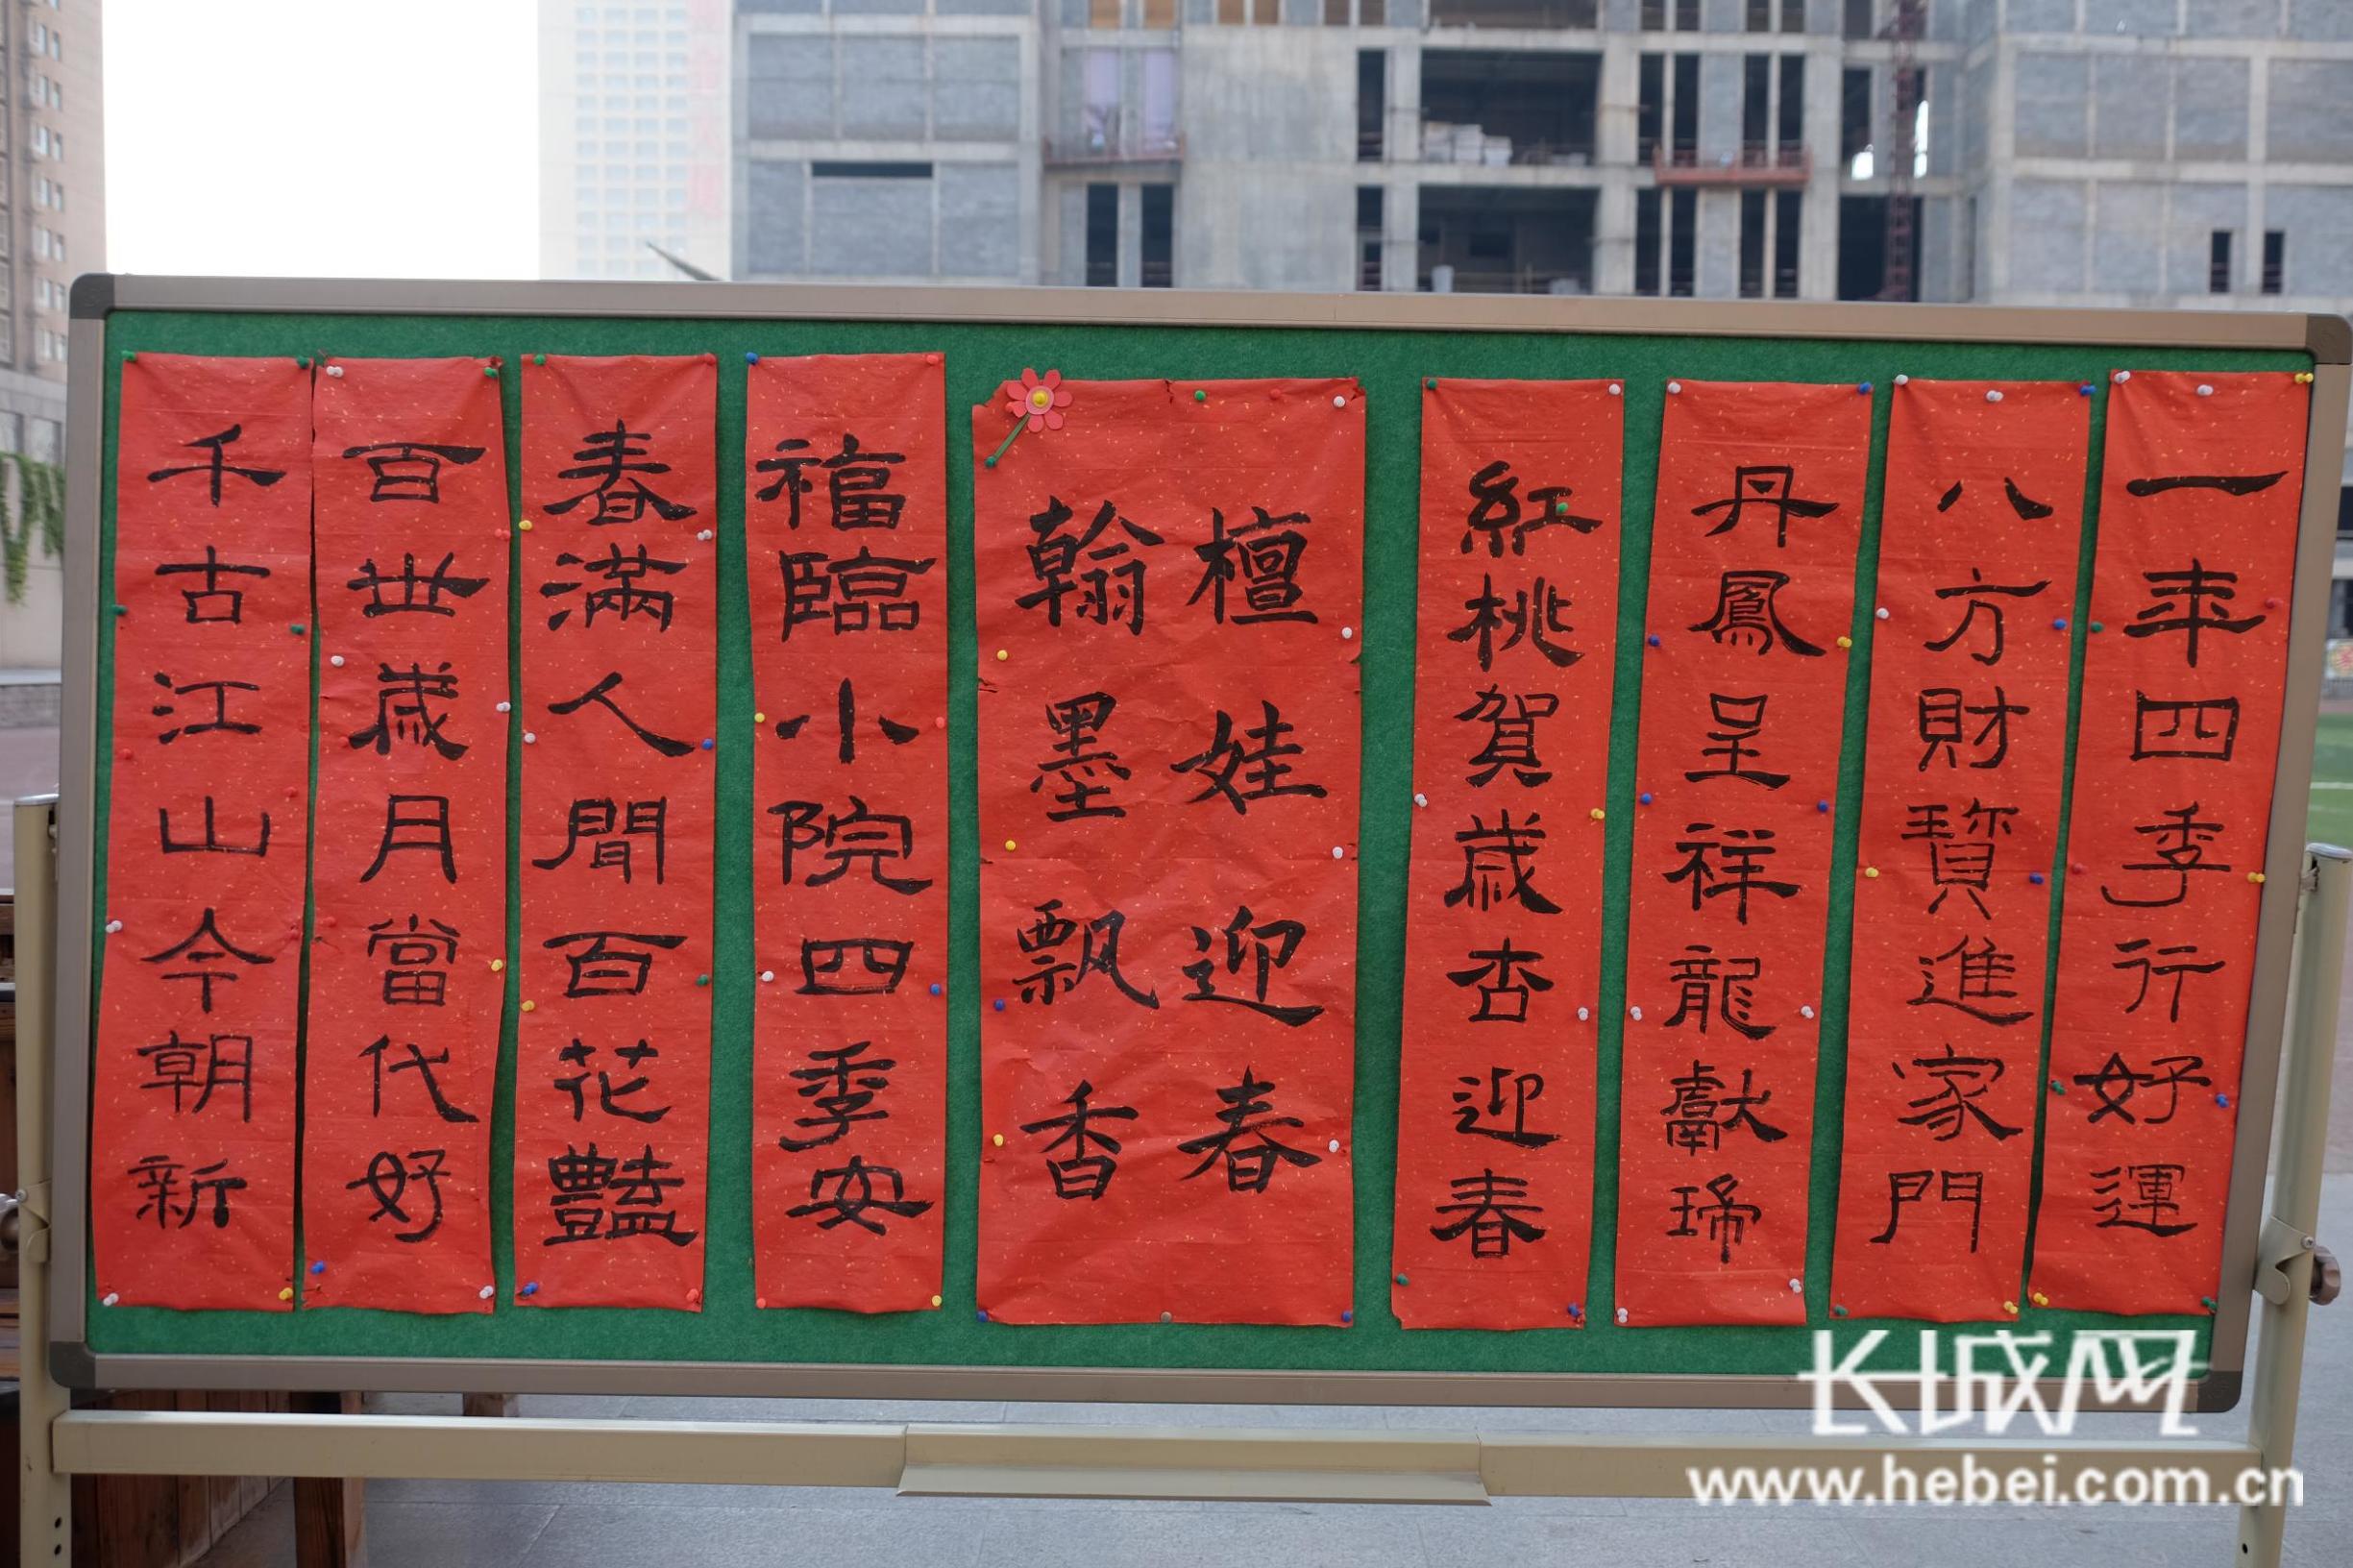 一年四季行好運
八方財寶進家門
丹鳳呈祥龍獻瑞
紅桃賀歲杏迎春
檀娃迎春
翰墨飘香
福臨小院四季安
春滿人間百花豔
百世歲月當代好
千古江山今朝新
长城网
www.hebei.com.cn